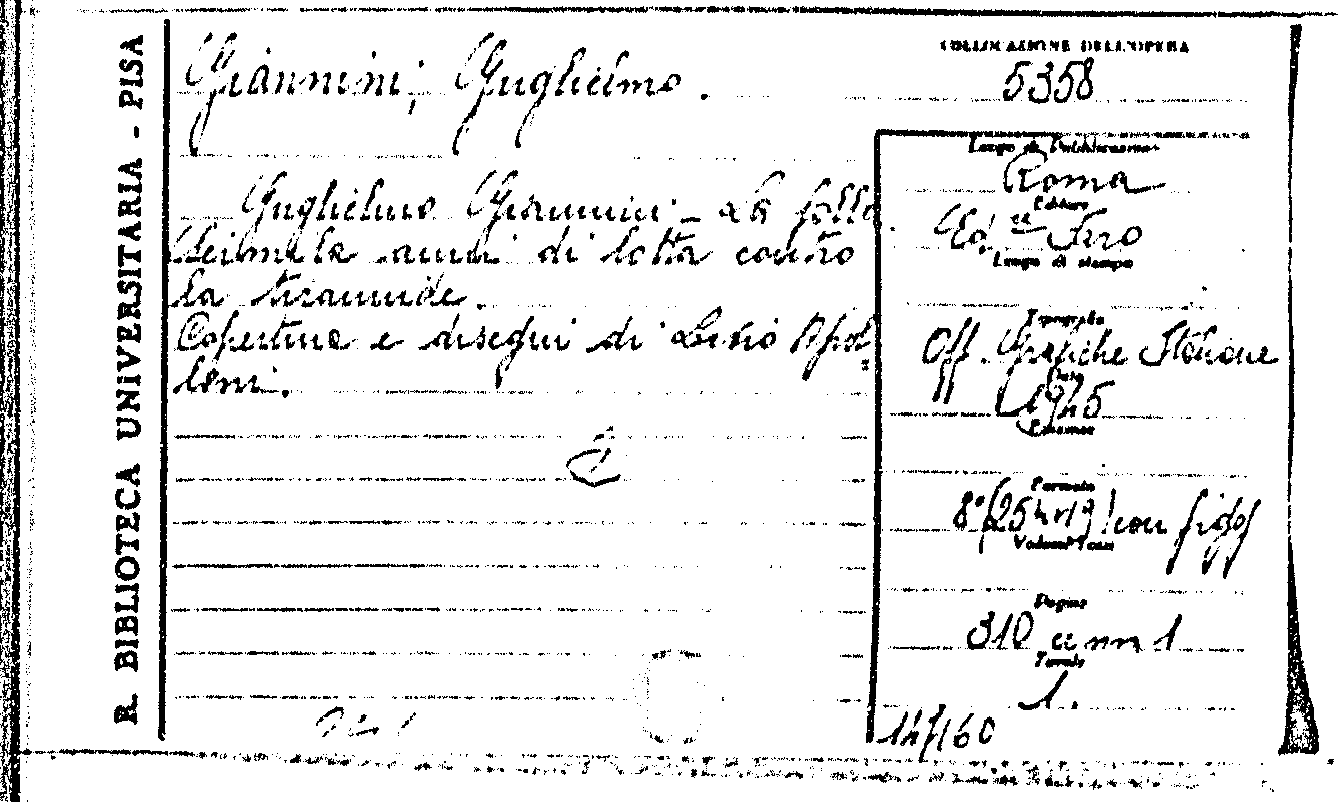 R. BIBLIOTECA UNIVERSITARIA - PISA
Giannini, Guglielmo.
Guglielmo Giannini - La folla
Seimila anni di lotta contro
la tirannide.
Copertina e disegni di Livio Apol-
loni.
COLLOCAZIONE DELL'OPERA
5358
Luogo di Pubblicazione
Roma
Editore
Ed.ce Faro
Luogo di stampa
Tipografia
Off. Grafiche Italiane
Data
1945
Edizione
Formato
8° (25 x 19) con figg
Volumi Tomi
Pagine
310 cc nn 1
Tavole
1.
147160